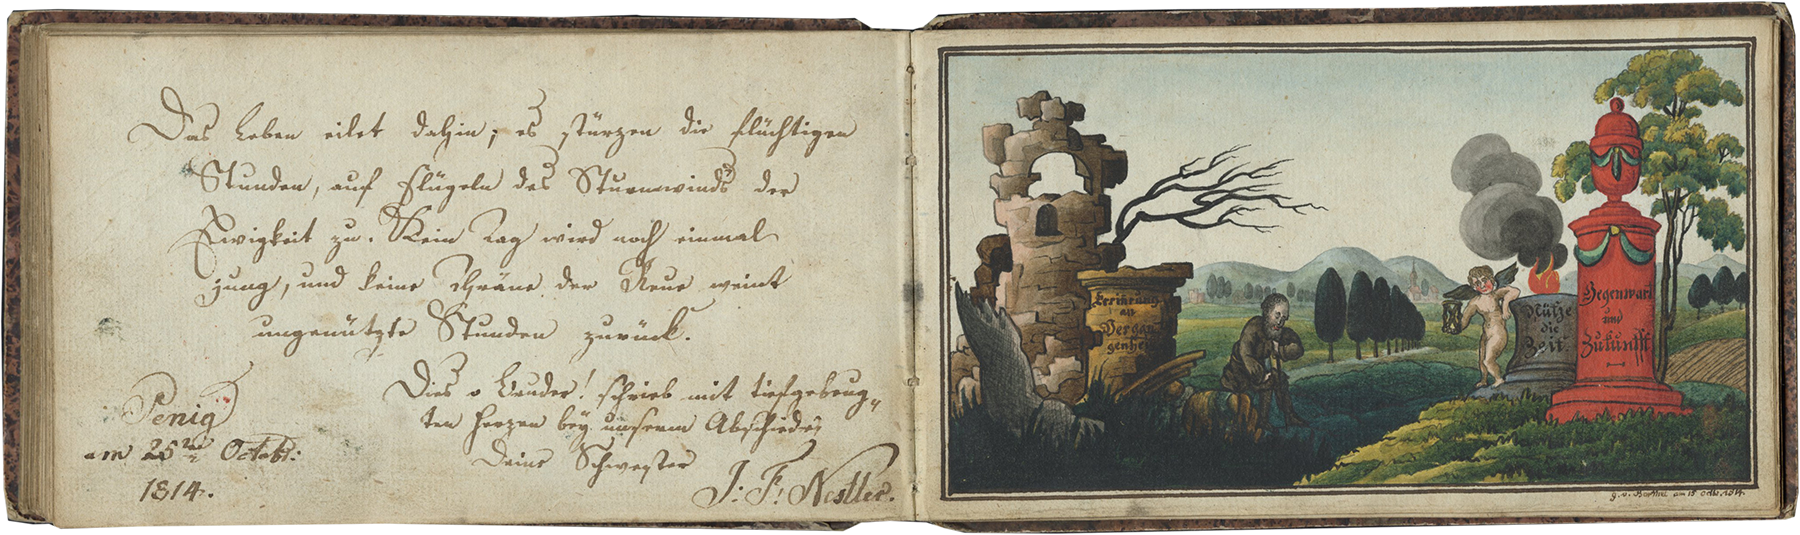 Das Leben eilet dahin; es stürzen die flüchtigen
Stunden, auf Flügeln des Sturmwinds der
Ewigkeit zu. Kein Tag wird noch einmal
jung, und keine Thräne der Reue weint
ungenützte Stunden zurück.
Dies o Bruder! schrieb mit tiefgebeug„
ten Herzen bey unserm Abschiede
Deine Schwester
J: F: Nestler.
Penig
am 25ten Octobr:
1814.
Erinrung
an
Vergan
genheit
Nütze
die
Zeit.
Gegenwart
und
Zukunfft
g. v. Barthel am 15 octbr. 1814.